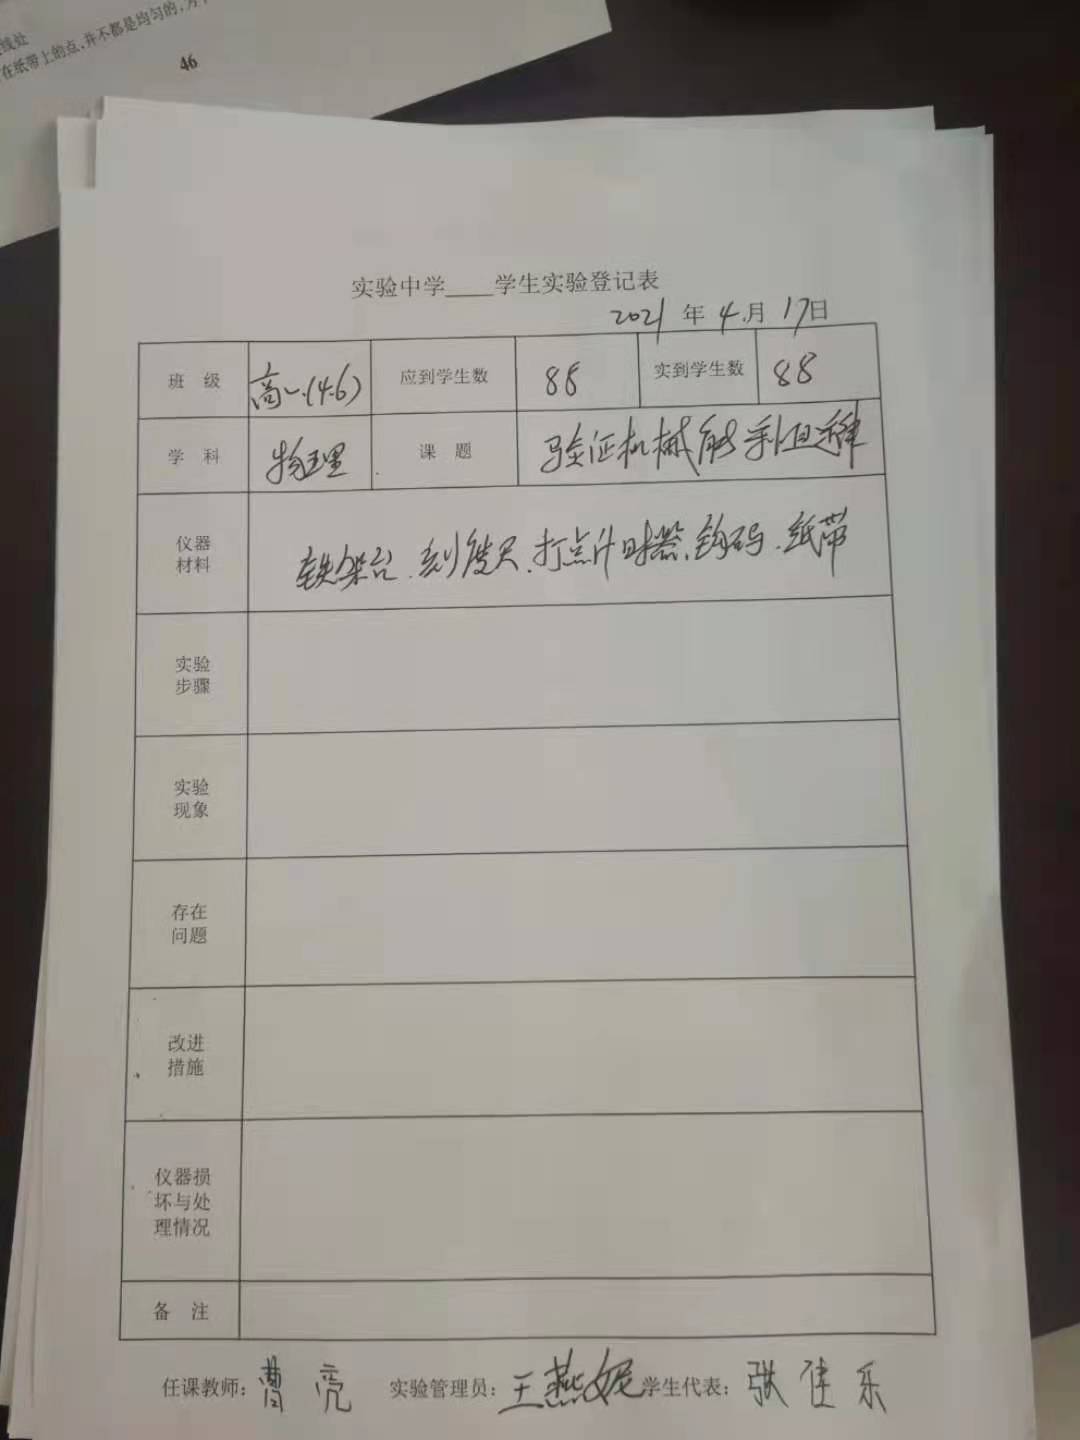 线处
在纸带上的点,并不都是均匀的,
46
实验中学____学生实验登记表
2021 年 4 月 17日
班 级 高一.(4.6) 应到学生数 88 实到学生数 88
学 科 物理 课 题 验证机械能守恒定律
仪器
材料
铁架台.刻度尺.打点计时器.钩码.纸带
实验
步骤
实验
现象
存在
问题
改进
措施
仪器损
坏与处
理情况
备 注
任课教师: 曹亮 实验管理员: 王燕妮 学生代表: 张佳乐